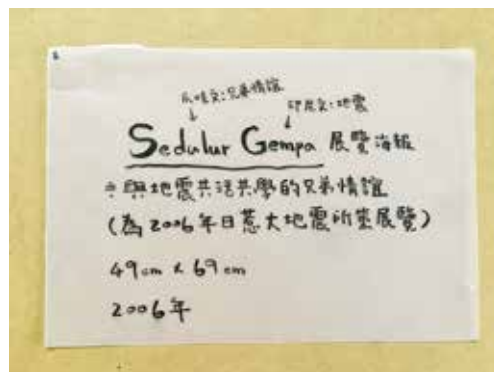 爪哇文:兄弟情誼
印尼文:地震
Sedulur Gempa 展覽海報
與地震共活共學的兄弟情誼
(為2006年日惹大地震所辦展覽)
49cm x 69cm
2006年